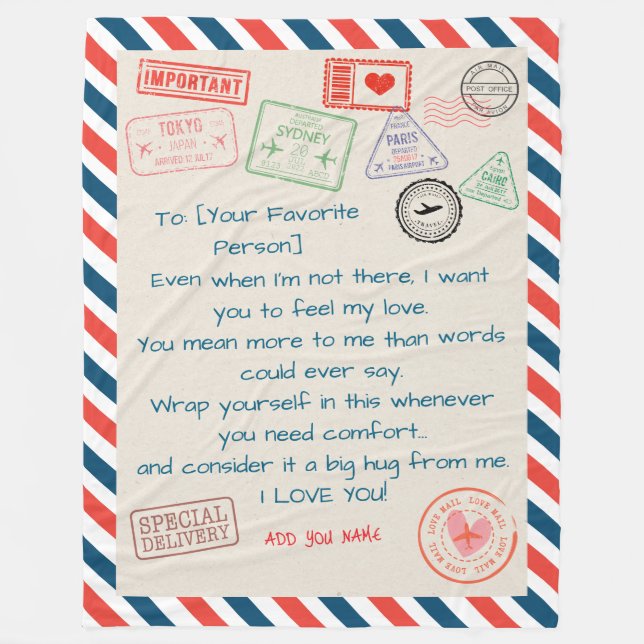 IMPORTANT
AIR MAIL
POST OFFICE
PAR AVION
TOKYO
JAPAN
ARRIVED 12 JUL 17
AUSTRALIA
DEPARTED
SYDNEY
20
JUL
0123
ABCD
FRANCE
PARIS
DEPARTED
PARIS AIRPORT
CAIRO
TRAVEL
To: [Your Favorite
Person]
Even when I'm not there, I want
you to feel my love.
You mean more to me than words
could ever say.
Wrap yourself in this whenever
you need comfort...
and consider it a big hug from me.
I LOVE YOU!
SPECIAL
DELIVERY
ADD YOU NAME
LOVE MAIL LOVE MAIL LOVE MAIL LOVE MAIL